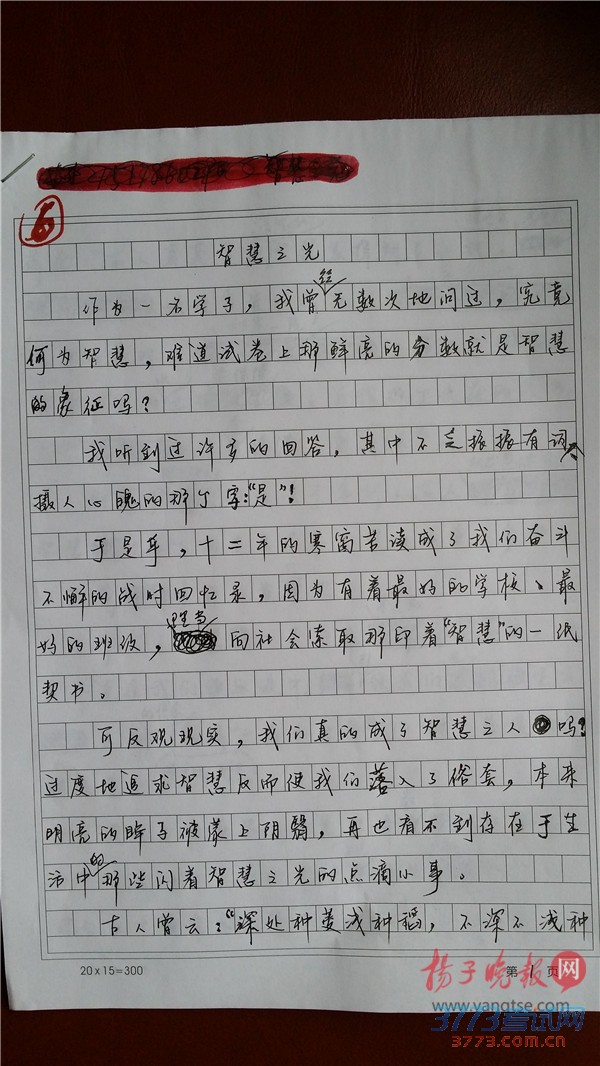 6
智慧之光
作为一名学子，我曾经无数次地问过，究竟
何为智慧，难道试卷上那鲜亮的分数就是智慧
的象征吗？
我听到过许多的回答，其中不乏振振有词、
摄人心魄的那个字："是"！
于是乎，十二年的寒窗苦读成了我们奋斗
不懈的战时回忆录，因为有着最好的学校、最
好的班级，理当向社会索取那印着"智慧"的一纸
契书。
可反观现实，我们真的成了智慧之人吗？
过度地追求智慧反而使我们落入了俗套，本来
明亮的眸子被蒙上阴翳，再也看不到存在于生
活中的那些闪着智慧之光的点滴小事。
古人曾云："深处种菱浅种稻，不深不浅种
20x15=300
第 1 页
扬子晚报网
www.yangtse.com
3773考试网
3773.com.cn